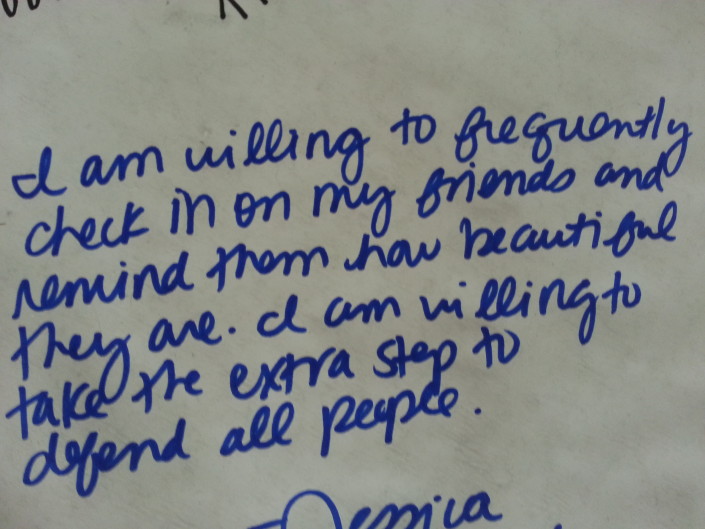 I am willing to frequently
check in on my friends and
remind them how beautiful
they are. I am willing to
take the extra step to
defend all people.
Jessica